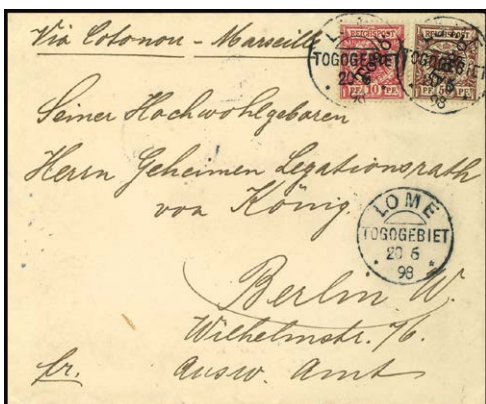 Via Cotonou - Marseille
REICHSPOST REICHSPOST
LOME
TOGOGEBIET TOGOGEBIET
20
98
PF. 10 PF. PF. 50 PF.
Seiner Hochwohlgeboren
Herrn Geheimen Legationsrath
von König.
LOME
TOGOGEBIET
20 5
98
Berlin W.
Wilhelmstr. 76.
fr. Ausw. Amt